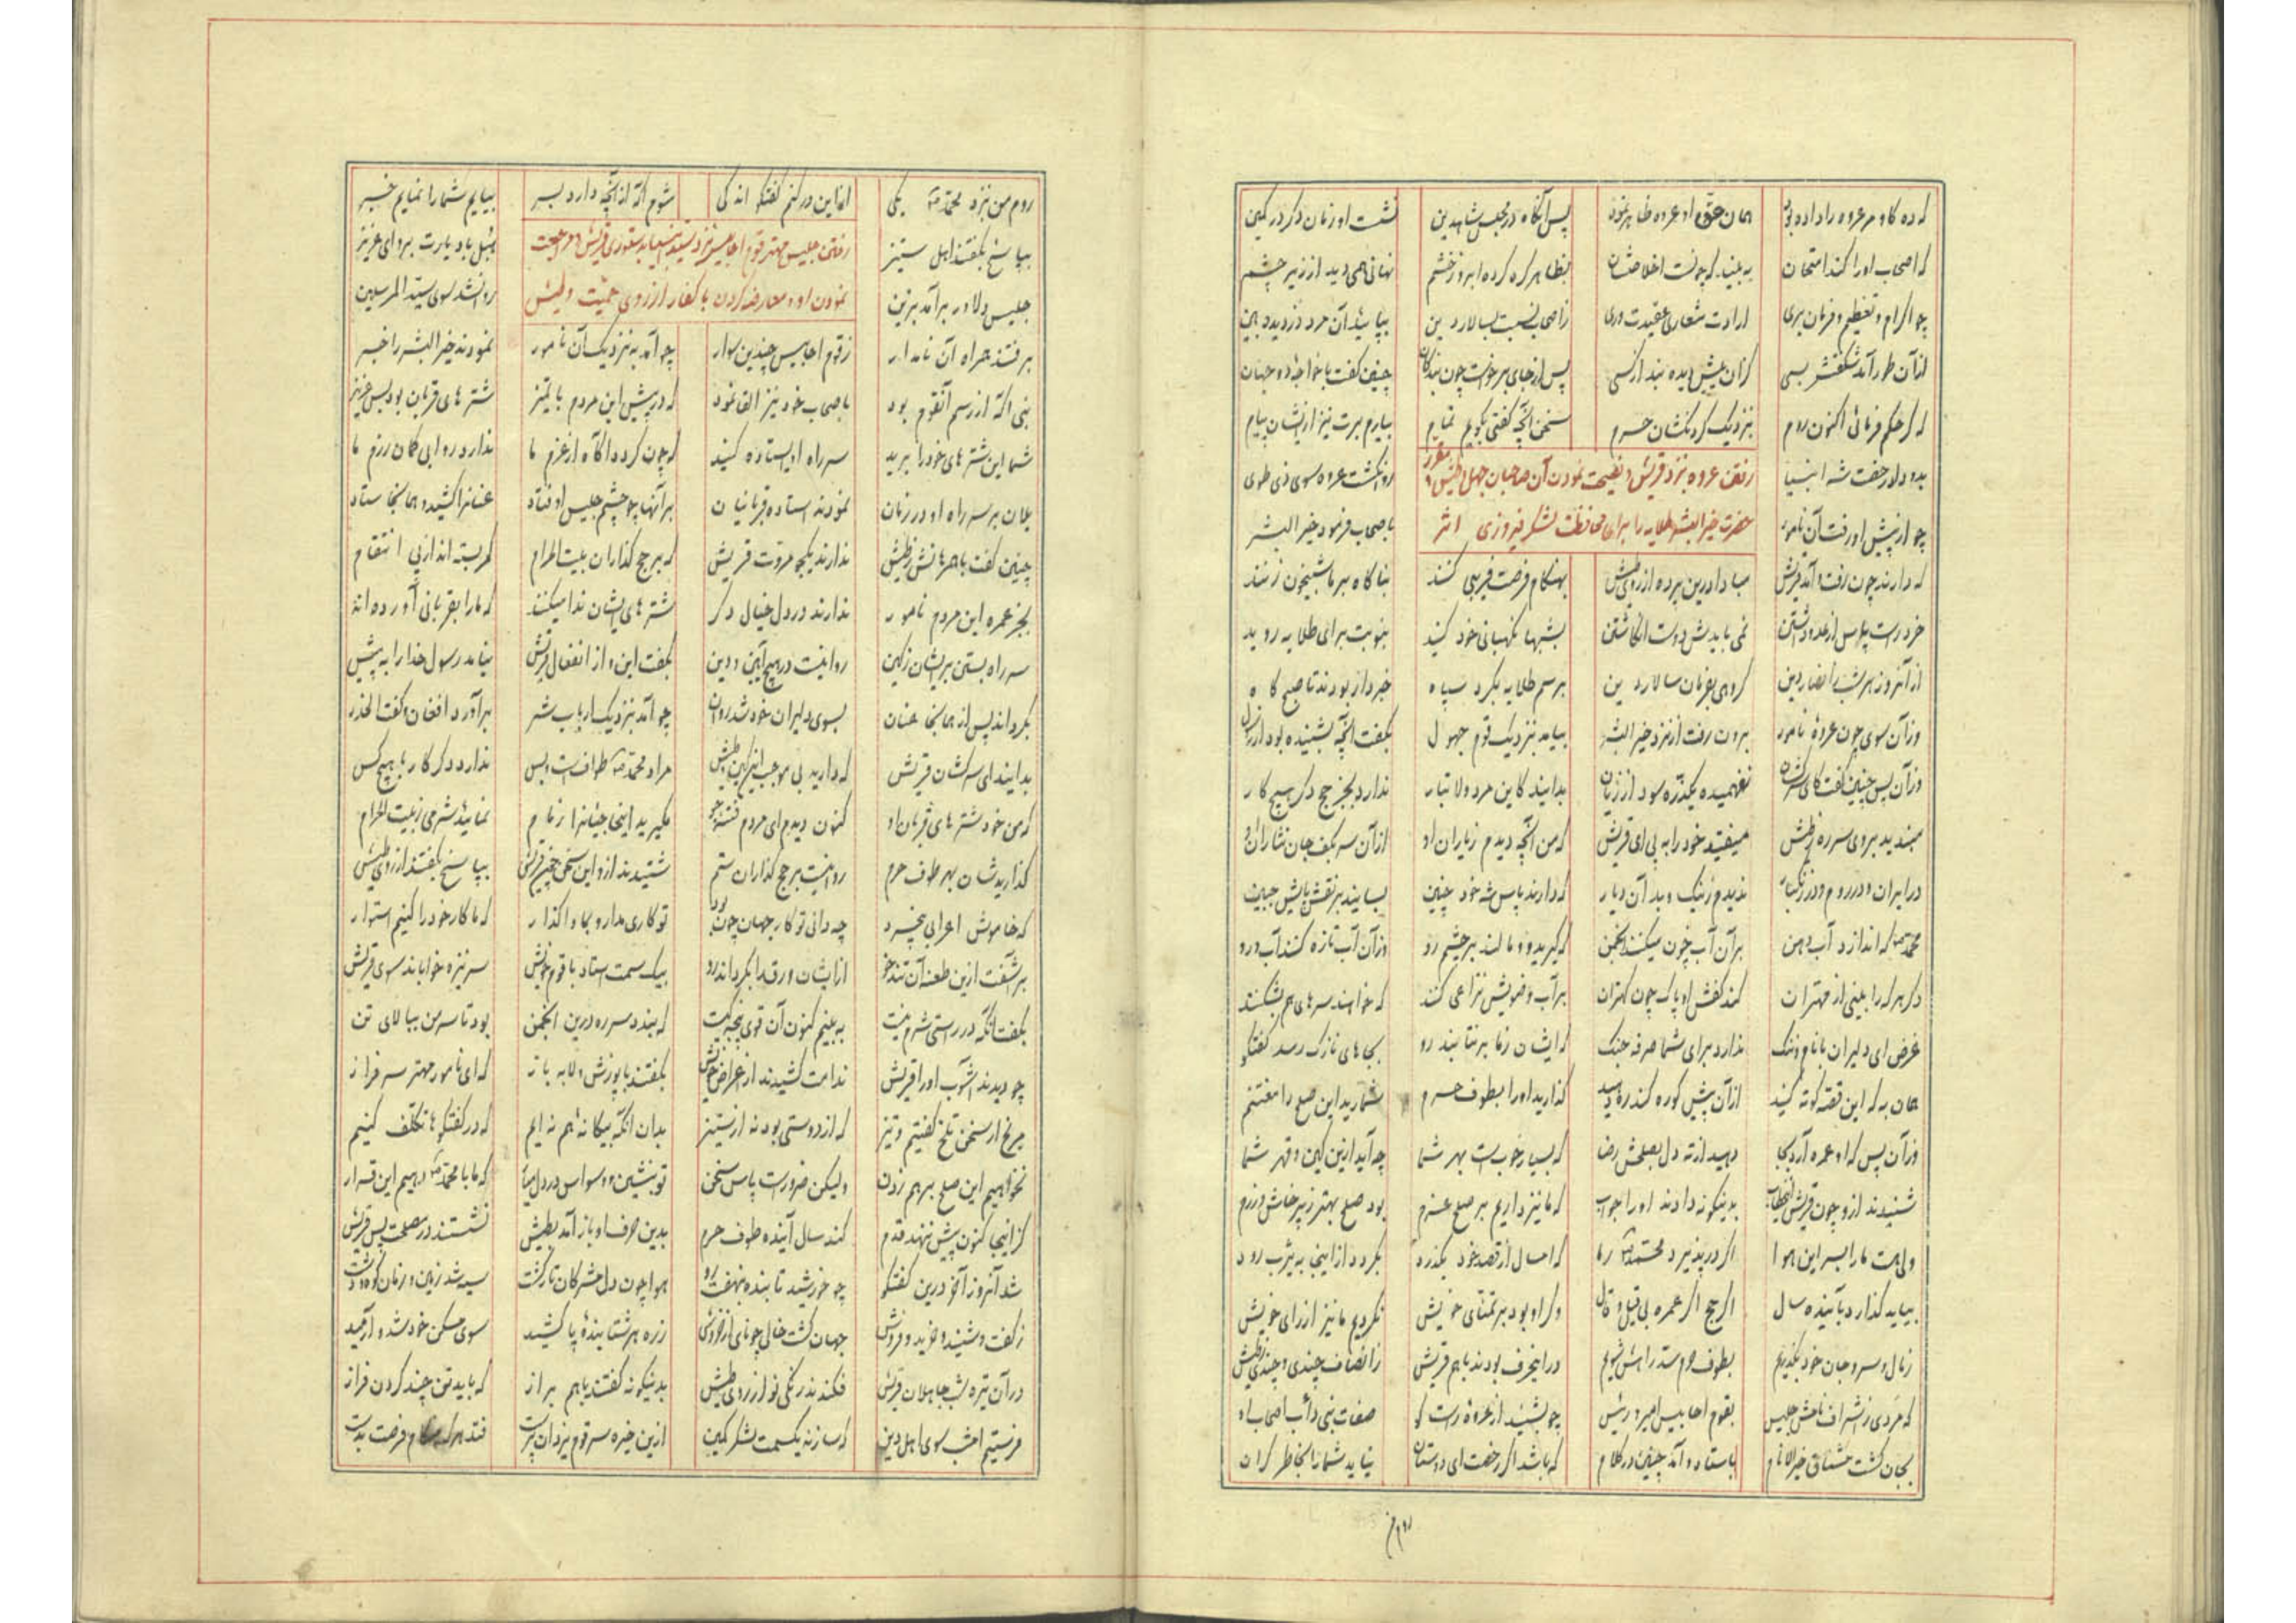 که ده گاو مر عروه را داده بود همان حق او عروه ظاهر نمود پس آنگاه در مجلس شاهدین نشست او زمان دگر در کمین
که اصحاب او را کند امتحان به بیند که چونست اخلاصشان بظاهر گره کرده ابرو ز خشم نهانی همی دید از زیر چشم
چو اکرام و تعظیم و فرمان بری ارادت شعاری عقیدت وری ز اصحاب نسبت بسالار دین بپایید آن مرد دزدیده بین
از آن طور آمد شگفتش بسی کزان پیش دیده نبد از کسی پس از جای برخواست چون بندگان چنین گفت با خواجه دو جهان
که گر حکم فرمائی اکنون روم بنزدیک گردنکشان حرم سخن آنچه گفتی بگویم تمام بیارم برت نیز ازیشان پیام
رفتن عروه بنزد قریش و نصیحت نمودن آن صاحبان جهل و طیش و مقرر
بدو داد رخصت شه انبیا روان گشت عروه سوی ذی طوی
حضرت خیر البشر طلایه را برای محافظت لشکر فیروزی اثر
چو از پیش او رفت آن نامور باصحاب فرمود خیر البشر
که دارند چون رفت و آمد قریش مبادا درین پرده از روی طیش بهنگام فرصت فریبی کنند بناگاه بر ما شبیخون زنند
خرد راست پاس از عدو داشتن نمی بایدش دوست انگاشتن بشبها نگهبانی خود کنید بنوبت برای طلایه روید
از آنروز هر شب ز انصار دین گروهی بفرمان سالار دین برسم طلایه بگرد سپاه خبردار بودند تا صبح گاه
وزآن سوی چون عروهٔ نامور برون رفت از نزد خیر البشر بیامد بنزدیک قوم جهول بگفت آنچه بشنیده بود از رسول
وزآن پس چنین گفت کای سرکشان نفهمیده یکذره سود از زیان بدانید کاین مرد والا تبار ندارد بجز حج دگر هیچ کار
مبندید بر وی سر ره ز طیش میفتید خود را به پی ای قریش که من آنچه دیدم ز یاران او از آن سر بکف جان نثاران او
در ایران و در روم و در زنگبار ندیدم ز نیک و بد آن دیار که دارند پاس شه خود چنین بسایند بر نقش پایش جبین
محمد که اندازد آب دهن بر آن آب خون میکنند انجمن که گیرند و مالند بر چشم رو وزآن آب تازه کنند آبرو
دگر هر که را بینی از مهتران کند کفش او پاک چون کهتران بر آب وضویش نزاعی کنند که خواهند سرهای هم بشکنند
غرض ای دلیران با نام و ننگ ندارد برای شما صرفه جنگ که ایشان ز ما بر نتابند رو بجاهای نازک رسد گفتگو
همان به که این قصه کوته کنید از آن پیش کو ره کند ره دهید گذارید او را بطوف حرم شمارید این صلح را مغتنم
وزآن پس که او عمره آرد بجا دهید از ته دل بصلحش رضا که بسیار خوب است بهر شما چه آید ازین کین و قهر شما
شنیدند ازو چون قریش این خطاب بدینگونه دادند او را جواب که ما نیز داریم بر صلح عزم بود صلح بهتر ز پرخاش و رزم
ولی هست ما را بسر این هوا اگر در پذیرد محمد ز ما که امسال از قصد خود بگذرد بگردد از اینجا به یثرب رود
بیاید گذارد بآینده سال اگر حج اگر عمره بی قیل و قال وگر او بود بر تمنای خویش نگردیم ما نیز از رای خویش
ز مال و سر و جان خود بگذریم بطوف حرم سد راهش شویم در این حرف بودند با هم قریش ز انصاف چندی و چندی ز طیش
که مردی ز اشراف نامش جلیس بقوم احابیس امیر و رئیس چو بشنید از عروهٔ راست گو صفات نبی دأب اصحاب او
بجان گشت مشتاق خیر الانام باستاد و آمد چنین در کلام که باشد اگر رخصت ای دوستان نیاید شما را بخاطر گران
روم من بنزد محمد یکی
روم من بنزد محمد یکی نمایم درین گفتگو اندکی شوم آگه از آنچه دارد بسر بیایم شما را نمایم خبر
رفتن جلیس مهتر قوم احابیش نزد سید انبیا بدستوری قریش و مراجعت
بپاسخ بگفتند اهل ستیز بهل باد یارت برو ای عزیز
نمودن او و معارضه کردن با کفار از روی حمیت و طیش
جلیس دلاور برآمد بزین روان شد سوی سید المرسلین
برفتند همراه آن نامدار ز قوم احابیس چندین سوار چو آمد به نزدیک آن نامور نمودند خیر البشر را خبر
نبی آگه از رسم آنقوم بود باصحاب خود نیز القا نمود که در پیش این مردم با تمیز شترهای قربان بود بس عزیز
شما این شترهای خود را برید سر راه او ایستاده کنید که چون گردد آگاه از عزم ما ندارد روا بی گمان رزم ما
یلان بر سر راه او در زمان نمودند استاده قربانیان بر آنها چو چشم جلیس اوفتاد عنان را کشید و همانجا ستاد
چنین گفت با همرهانش ز طیش ندارند یکجو مروت قریش که بر حج گذاران بیت الحرام کمر بسته اند از پی انتقام
بجز عمره این مردم نامور ندارند در دل خیال دگر شترهای ایشان ندا میکنند که ما را بقربانی آورده اند
سر راه بستن بریشان ز کین روا نیست در هیچ آیین و دین بگفت این و از انفعال قریش نیامد رسول خدا را به پیش
بگرداند پس از همانجا عنان بسوی دلیران خود شد روان چو آمد بنزدیک ارباب شر برآورد افغان و گفت الحذر
بدانید ای سرکشان قریش که دارید بی موجب این کین و طیش مراد محمد طواف است و بس ندارد دگر کار با هیچ کس
که من خود شترهای قربان او کنون دیدم ای مردم فتنه جو مگیرید اینجا جیانرا زمام نمائید شرمی ز بیت الحرام
گذاریدشان بهر طوف حرم روا نیست بر حج گذاران ستم شنیدند ازو این سخن چون قریش بپاسخ بگفتند از روی طیش
که خاموش اعرابی بیخرد چه دانی تو کار جهان چون بود تو کاری مدار و بما واگذار که ما کار خود را کنیم استوار
برآشفت ازین طعنه آن تندخو ازیشان ورق را بگرداند رو بیک سمت استاد با قوم خویش سر نیزه خواباند سوی قریش
بگفت آنکه در راستی شرم نیست به بینم کنون آن قوی پنجه کیست که بندد سر ره درین انجمن بود تا سر من ببالای تن
چو دیدند آشوب او را قریش ندامت کشیدند ز اعراض خویش بگفتند با پوزش و لابه باز که ای نامور مهتر سرفراز
مرنج ار سخن تلخ گفتیم و تیز که از دوستی بود نه از ستیز بدان آنکه بیگانه هم نه ایم که در گفتگوها تکلف کنیم
نخواهیم این صلح بر هم زدن ولیکن ضرور است پاس سخن تو بنشین و وسواس در دل میار که ما با محمد دهیم این قرار
کز اینجا کنون پیش ننهد قدم کند سال آینده طوف حرم بدین حرف او باز آمد بطیش نشستند در مصلحت پس قریش
شد آنروز آخر درین گفتگو چو خورشید تابنده بنهفت رو هوا چون دل مشرکان تار گشت سیه شد زمین و زمان کوه و دشت
ز گفت و شنید و خرید و فروش جهان گشت خالی چو نای از خروش زره هر شتابندهٔ پا کشید سوی مسکن خود شد و آرمید
در آن تیره شب جاهلان قریش فکندند رنگی نو از روی طیش بدینگونه گفتند با هم براز که باید تنی چند گردن فراز
فرستیم امشب سوی اهل دین که سازند یکسمت لشکر کمین ازین خیره سر قوم یزدان پرست فتد هر که هنگام فرصت بدست